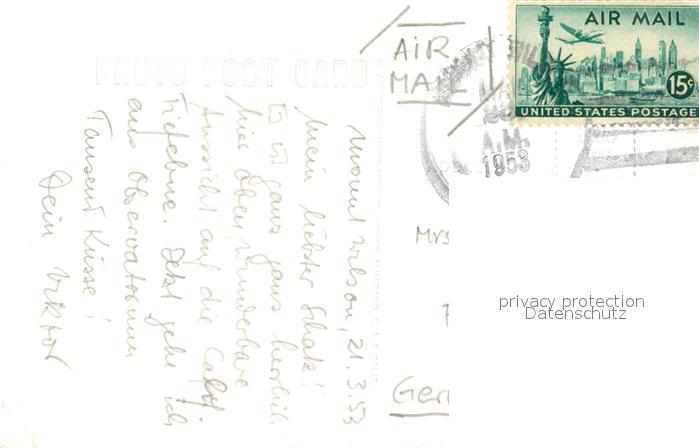 PHOTO POST CARD
Mount Wilson, 21.3.53
Mein liebster Schatz!
Es ist ganz ganz herrlich
hier oben, wunderbare
Aussicht auf die Calif.
Tiefebene. Jetzt gehe ich
ans Observatorium
Tausend Küsse!
Dein Viktor
AIR
MAIL
AIR MAIL
15¢
UNITED STATES POSTAGE
A.M.
1953
Mrs
Ger
privacy protection
Datenschutz